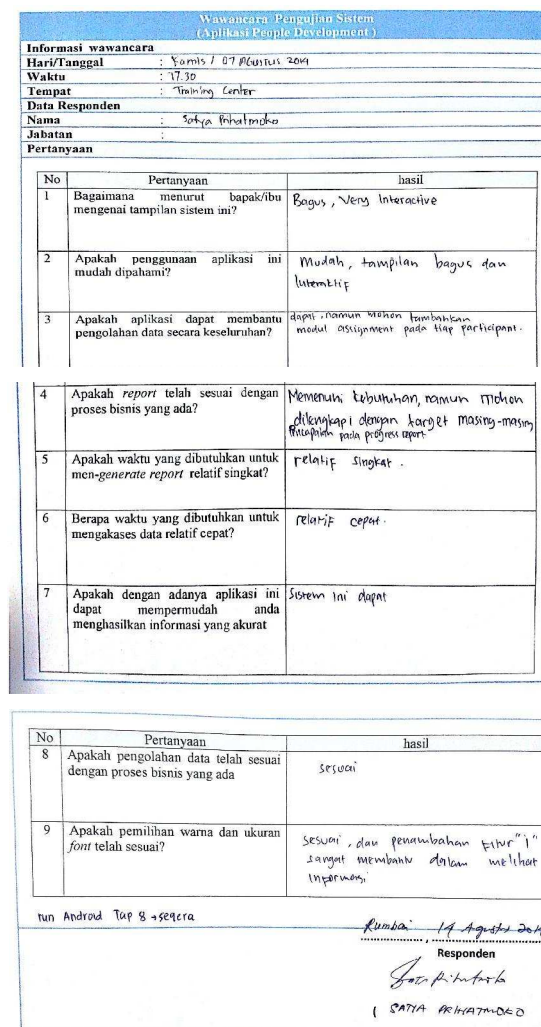 Wawancara Pengujian Sistem
(Aplikasi People Development)
Informasi wawancara
Hari/Tanggal : Kamis / 07 Agustus 2014
Waktu : 17.30
Tempat : Training Center
Data Responden
Nama : Satya Prihatmoko
Jabatan :
Pertanyaan
No Pertanyaan hasil
1 Bagaimana menurut bapak/ibu mengenai tampilan sistem ini?
Bagus, Very Interactive
2 Apakah penggunaan aplikasi ini mudah dipahami?
Mudah, tampilan bagus dan
Interaktif
3 Apakah aplikasi dapat membantu pengolahan data secara keseluruhan?
dapat, namun mohon tambahkan
modul assignment pada tiap participant.
4 Apakah report telah sesuai dengan proses bisnis yang ada?
Memenuhi kebutuhan, namun mohon
dilengkapi dengan target masing-masing
Pencapaian pada progress report
5 Apakah waktu yang dibutuhkan untuk men-generate report relatif singkat?
relatif singkat.
6 Berapa waktu yang dibutuhkan untuk mengakases data relatif cepat?
relatif cepat.
7 Apakah dengan adanya aplikasi ini dapat mempermudah anda menghasilkan informasi yang akurat
Sistem ini dapat
No Pertanyaan hasil
8 Apakah pengolahan data telah sesuai dengan proses bisnis yang ada
sesuai
9 Apakah pemilihan warna dan ukuran font telah sesuai?
sesuai, dan penambahan fitur "i"
sangat membantu dalam melihat
Informasi
run Android Tap 8 → segera
Rumbai, 14 Agustus 2014
Responden
( SATYA PRIHATMOKO